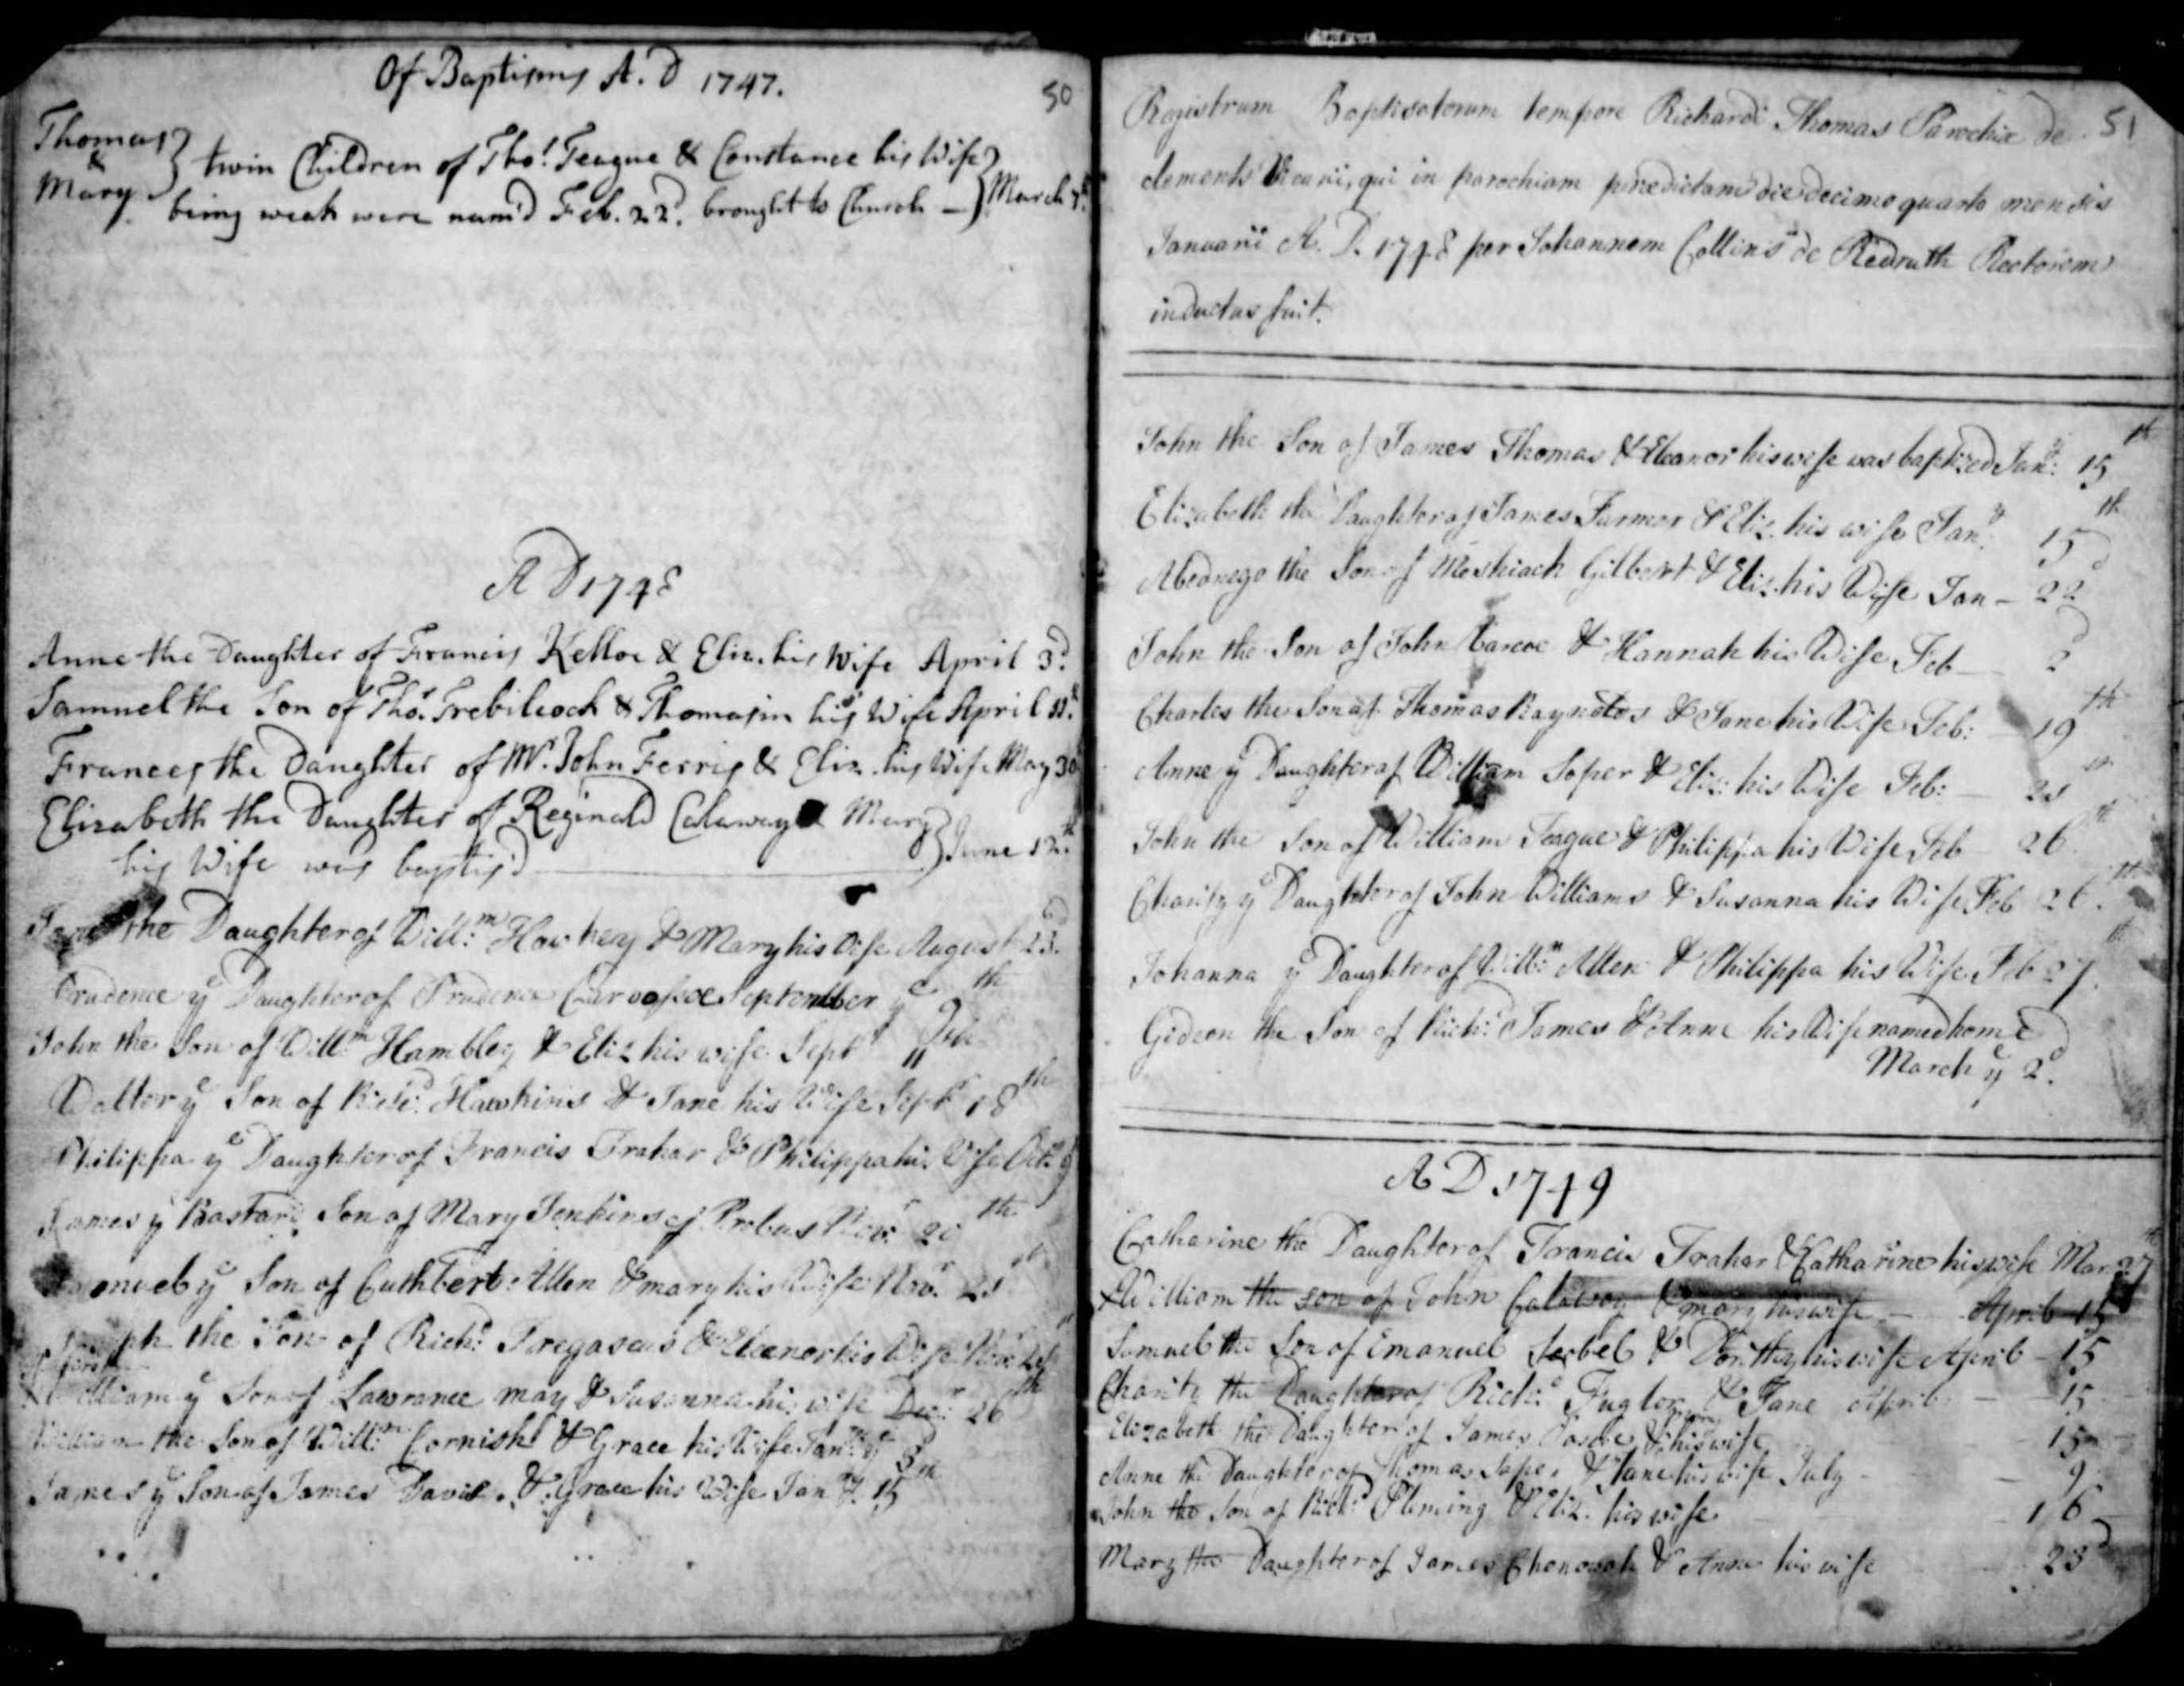 Of Baptisms A. D 1747.
50
Thomas
&
Mary
twin Children of Tho.s Teague & Constance his Wife
being weak were nam'd Feb. 22d. brought to Church — March 7th
A D 1748
Anne the Daughter of Francis Kelloe & Eliz. his Wife April 3d.
Samuel the Son of Tho.s Trebilcock & Thomasin his Wife April 11th.
Frances the Daughter of Mr. John Ferris & Eliz. his Wife May 30
Elizabeth the Daughter of Reginald Calaway & Mary
his Wife was baptis'd June 12th.
Jane the Daughter of Will:m Hawkey & Mary his Wife August 23d.
Prudence ye Daughter of Prudence Carvosoe September ye 9th
John the Son of Will:m Hambley & Eliz his wife Sept. 11th
Walter ye Son of Rich:d Hawkins & Jane his Wife Sept 18th
Philippa ye Daughter of Francis Trahar & Philippa his Wife Oct: 9
James ye Bastard Son of Mary Jenkins of Probus Nov:r 20th
ye Son of Cuthbert Allen & mary his Wife Nov:r
the Son of Rich:d Tregascus & Eleanor his Wife
William ye Son of Lawrance may & Susanna his wife Dec:r 26th
William the Son of Will:m Cornish & Grace his Wife Jan:ry ye 3d
James ye Son of James Davis & Grace his Wife Jan:ry 15th
51
Registrum Baptisatorum tempore Richardi Thomas Parochiæ de
clements Vicarii, qui in parochiam prædictam die decimo quarto mensis
Januarii A. D. 1748 per Johannem Collins de Redruth Rectorem
inductus fuit.
John the Son of James Thomas & Eleanor his wife was baptized Jan:y 15th
Elizabeth the Daughter of James Farmer & Eliz. his wife Jan:y 15th
Abednego the Son of Meshiach Gilbert & Eliz. his Wife Jan – 22d
John the Son of John & Hannah his Wife Feb — 2d
Charles the Son of Thomas & Jane his Wife Feb: 19th
Anne ye Daughter of William Soper & Eliz: his Wife Feb: —
John the Son of William Teague & Philippa his Wife Feb 26th
Charity ye Daughter of John Williams & Susanna his Wife Feb 26th.
Johanna ye Daughter of Will:m Allen & Philippa his Wife Feb 27th.
Gideon the Son of Rich:d James & Anne his Wife named home
March ye 2d.
A D 1749
Catharine the Daughter of Francis Trahar & Katharine his wife Mar: 27th
William the son of John Calaway & mary his wife — April 15
Samuel the Son of Emanuel & Dorithy his wife April – 15
Charity the Daughter of Rich:d Fugler & Jane April — 15
Elizabeth the Daughter of James & Mary his wife 15
Anne the Daughter of Thomas Soper & Jane his wife July — 9
John the Son of Rich:d Fleming & Eliz. his wife 16
Mary the Daughter of James Chenowoth & Anne his wife 23d